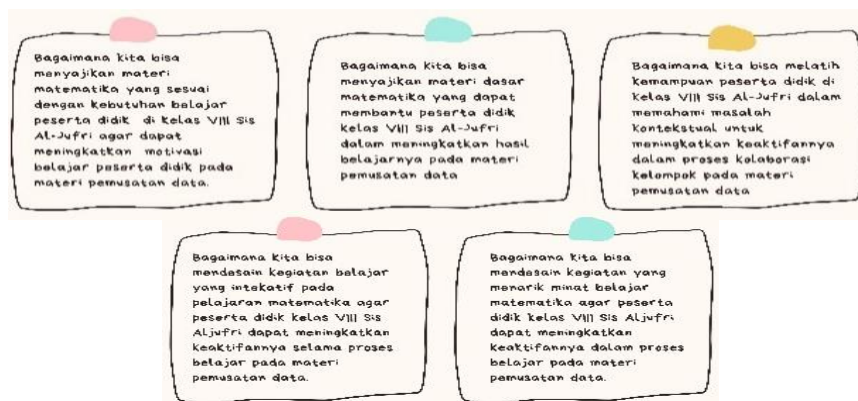 Bagaimana kita bisa
menyajikan materi
matematika yang sesuai
dengan kebutuhan belajar
peserta didik di kelas VIII Sis
Al-Jufri agar dapat
meningkatkan motivasi
belajar peserta didik pada
materi pemusatan data.
Bagaimana kita bisa
menyajikan materi dasar
matematika yang dapat
membantu peserta didik
kelas VIII Sis Al-Jufri
dalam meningkatkan hasil
belajarnya pada materi
pemusatan data
Bagaimana kita bisa melatih
kemampuan peserta didik di
kelas VIII Sis Al-Jufri dalam
memahami masalah
kontekstual untuk
meningkatkan keaktifannya
dalam proses kolaborasi
kelompok pada materi
pemusatan data
Bagaimana kita bisa
mendesain kegiatan belajar
yang intekatif pada
pelajaran matematika agar
peserta didik kelas VIII Sis
Aljufri dapat meningkatkan
keaktifannya selama proses
belajar pada materi
pemusatan data.
Bagaimana kita bisa
mendesain kegiatan yang
menarik minat belajar
matematika agar peserta
didik kelas VIII Sis Aljufri
dapat meningkatkan
keaktifannya dalam proses
belajar pada materi
pemusatan data.